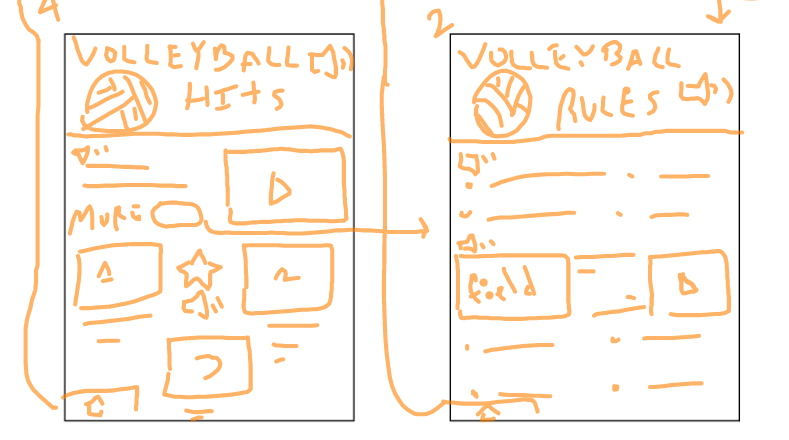 4
VOLLEYBALL
HITS
MORE
1
2
3
2
VOLLEYBALL
RULES
field